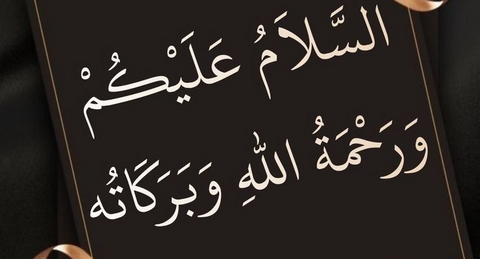 السَّلَامُ عَلَيْكُمْ
وَرَحْمَةُ اللهِ وَبَرَكَاتُه